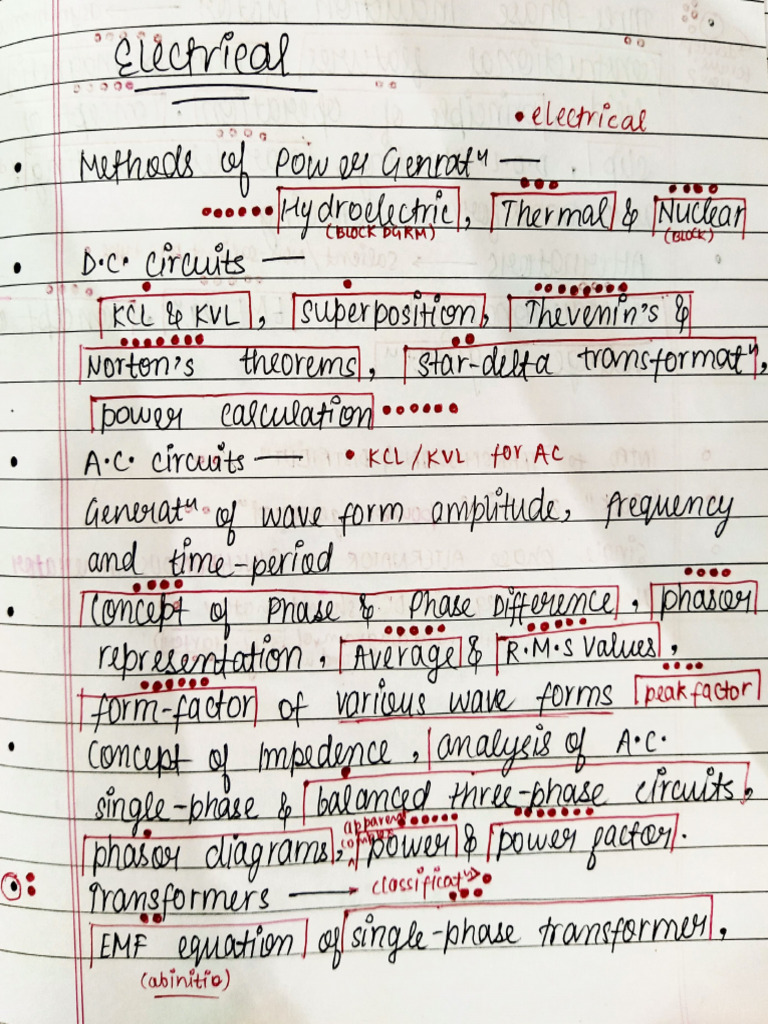 Electrical
• electrical
• Methods of Power Generatⁿ —
Hydroelectric, Thermal & Nuclear
(BLOCK DGRM) (BLOCK)
• D.C. circuits —
KCL & KVL, superposition, Thevenin's &
Norton's theorems, star-delta transformatⁿ,
power calculation
• A.C. circuits — • KCL/KVL for AC
Generatⁿ of wave form amplitude, frequency
and time-period
• Concept of Phase & Phase Difference, phasor
representation, Average & R.M.S values,
form-factor of various wave forms peak factor
• concept of impedence, analysis of A.C.
single-phase & balanced three-phase circuits,
phasor diagrams, apparent complex power & power factor.
Transformers → classificatⁿ
EMF equation of single-phase transformer,
(abinitio)